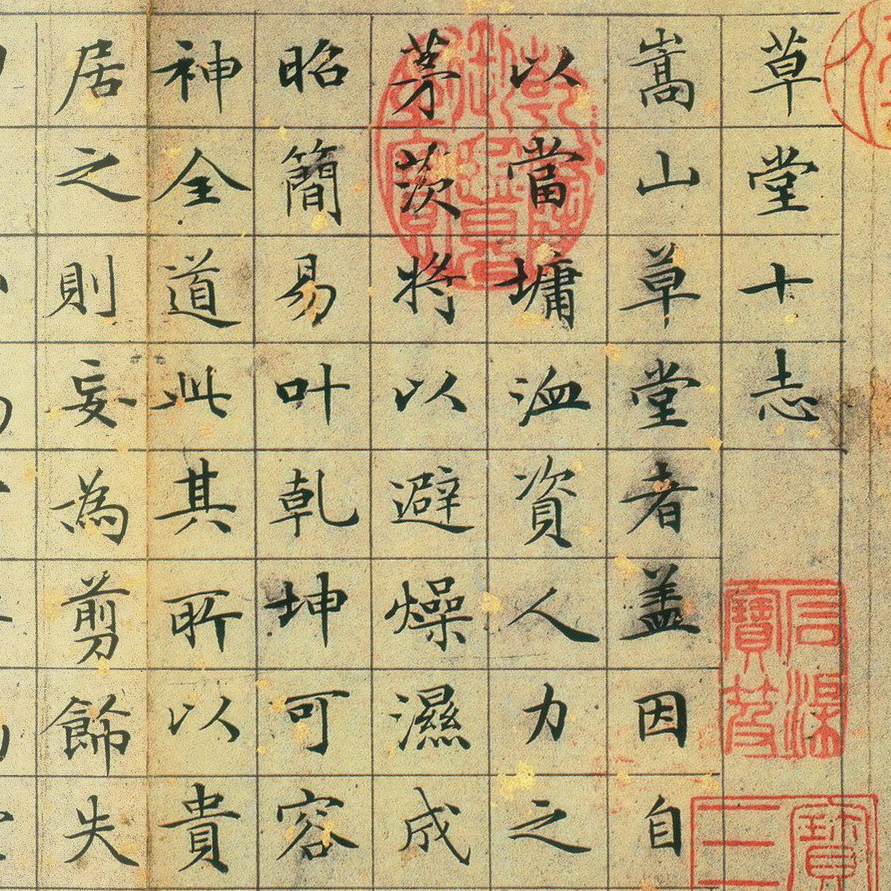 草堂十志
嵩山草堂者盖因自
以當墉洫資人力之
茅茨将以避燥濕成
昭簡易叶乾坤可容
神全道此其所以貴
居之則妄為剪餙失